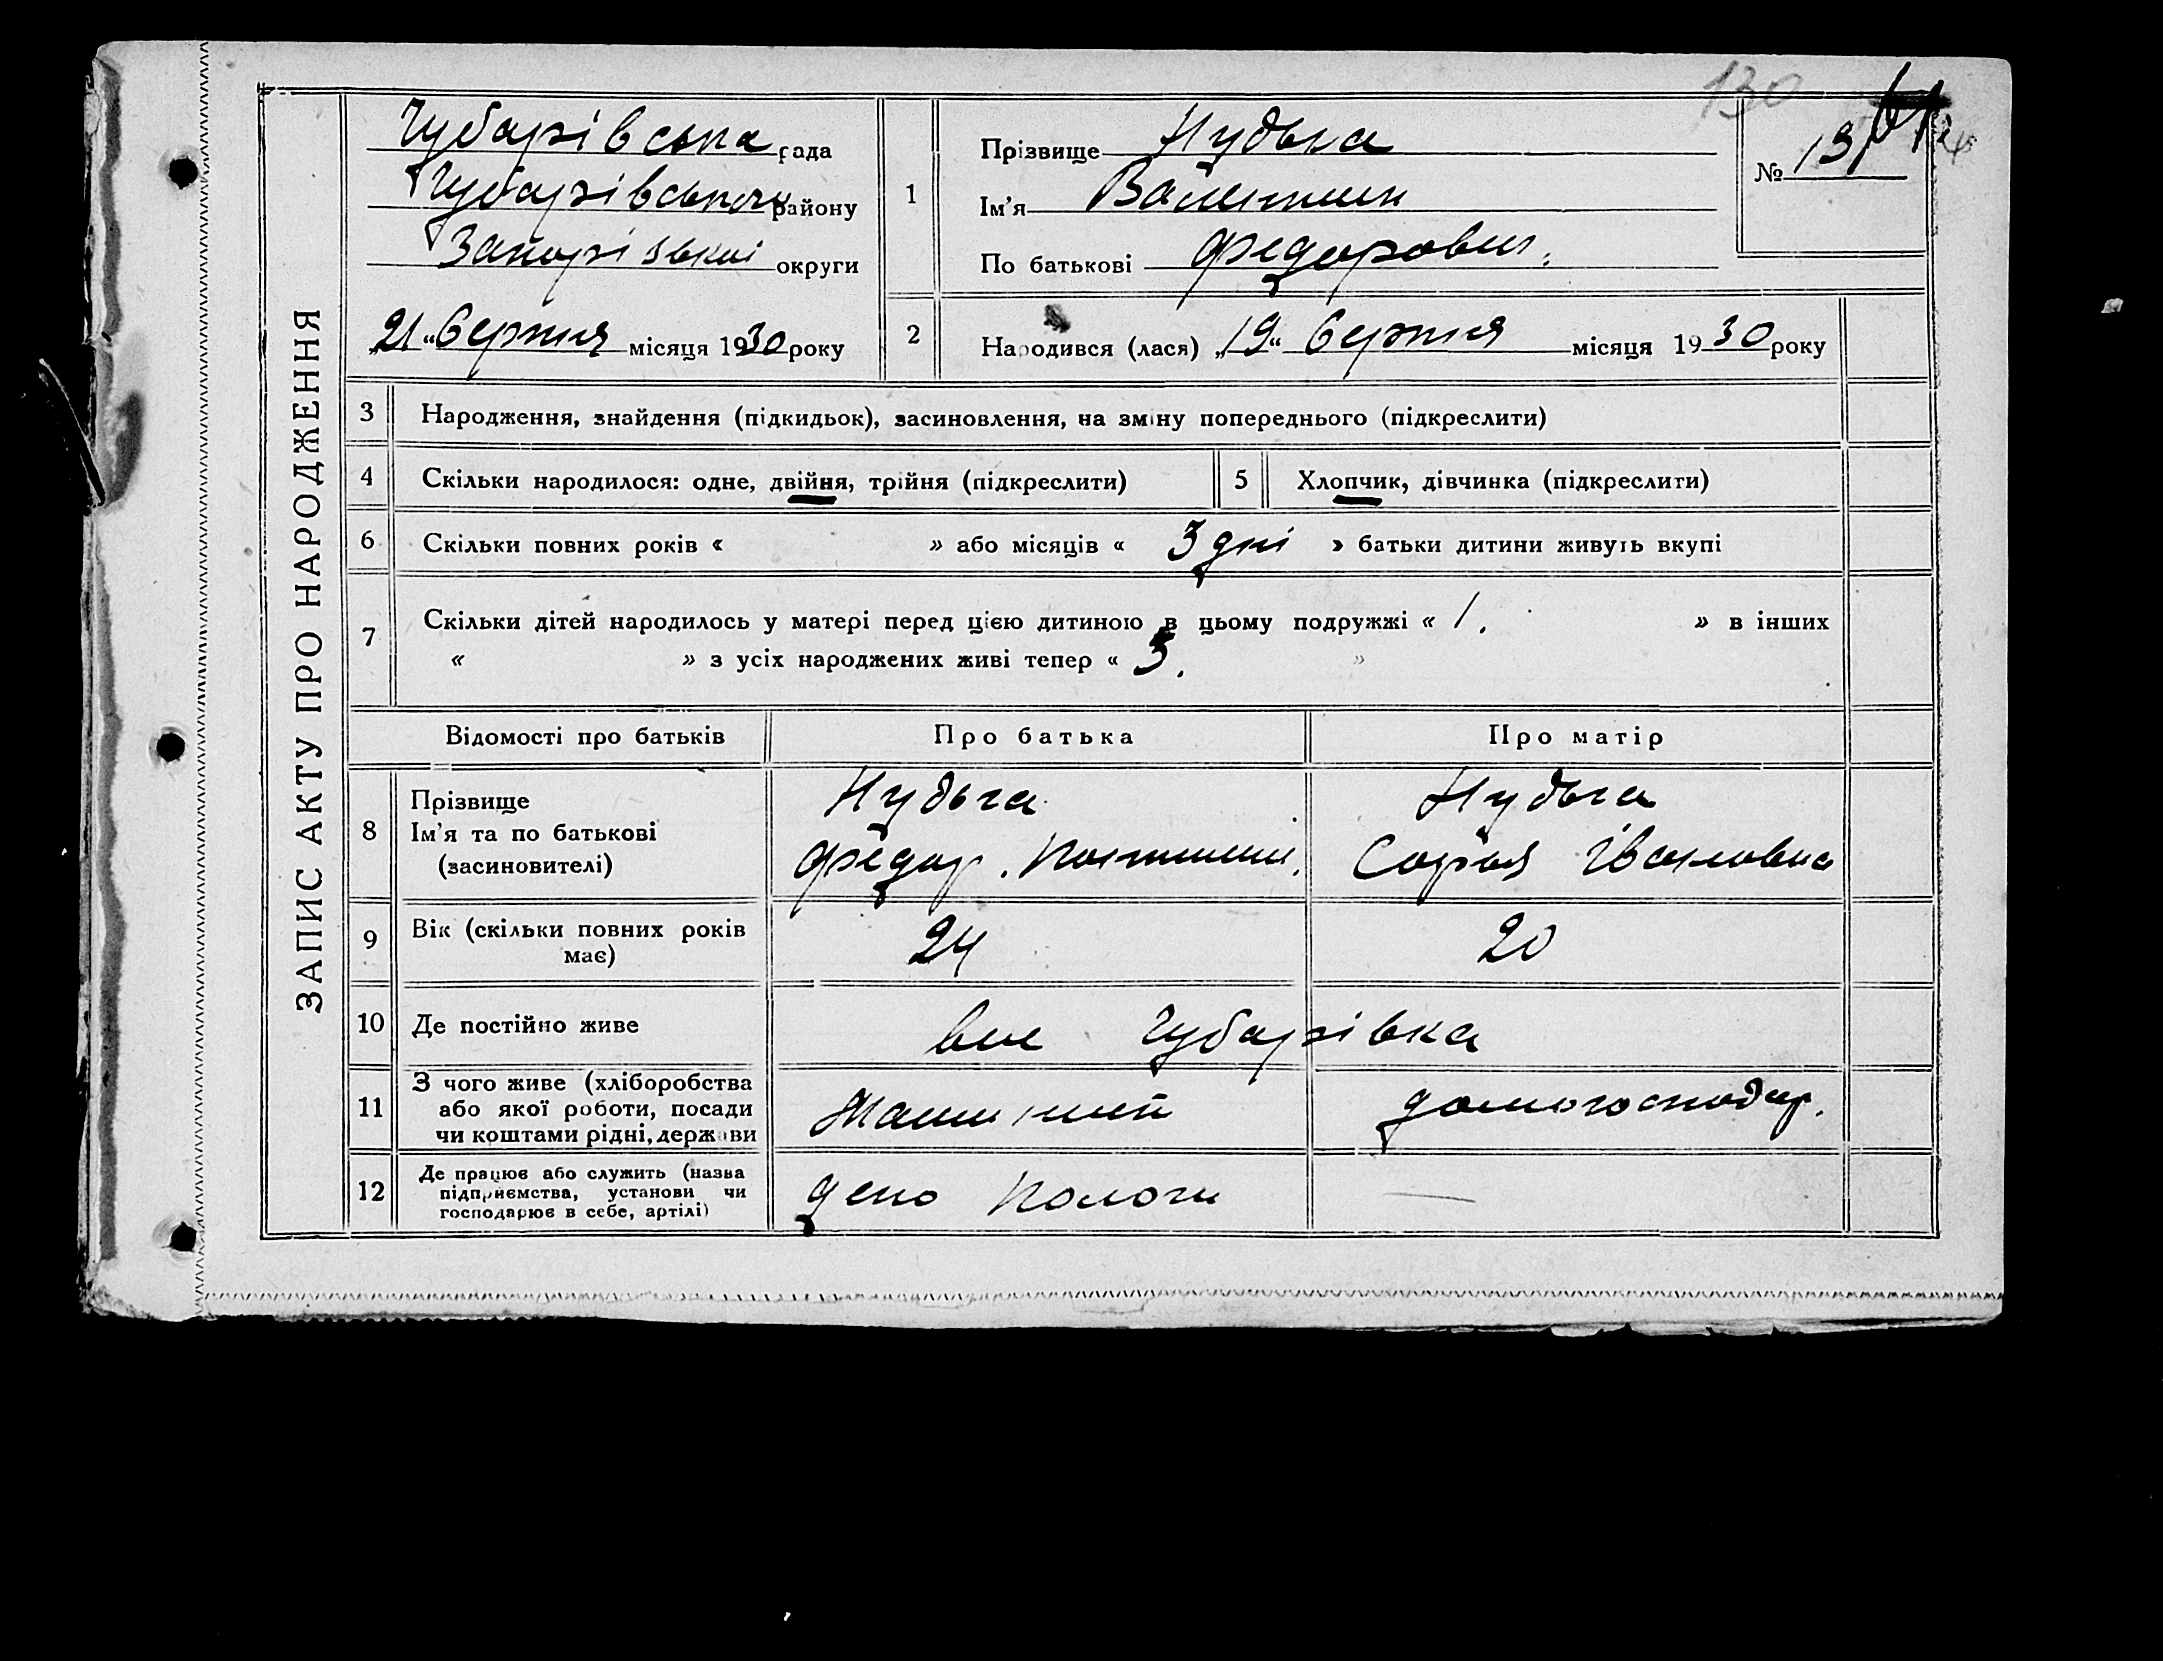 130
ЗАПИС АКТУ ПРО НАРОДЖЕННЯ
Чубарівська рада
Чубарівського району
Запорізької округи
„21“ Серпня місяця 1930 року
1
Прізвище Нудьга
Ім'я Валентин
По батькові Федорович.
№ 13
2
Народився (лася) „19“ Серпня місяця 1930 року
3 Народження, знайдення (підкидьок), засиновлення, на зміну попереднього (підкреслити)
4 Скільки народилося: одне, двійня, трійня (підкреслити)
5 Хлопчик, дівчинка (підкреслити)
6 Скільки повних років « » або місяців « 3 дні » батьки дитини живуть вкупі
7 Скільки дітей народилось у матері перед цією дитиною в цьому подружжі « 1. » в інших
« » з усіх народжених живі тепер « 3. »
Відомості про батьків Про батька Про матір
8
Прізвище
Ім'я та по батькові
(засиновителі)
Нудьга
Федор.
Нудьга
Софья Івановна
9 Вік (скільки повних років
має)
24 20
10 Де постійно живе
Чубарівка
11
З чого живе (хліборобства
або якої роботи, посади
чи коштами рідні, держави
домогосподар.
12
Де працює або служить (назва
підприємства, установи чи
господарює в себе, артілі)
депо Пологи —